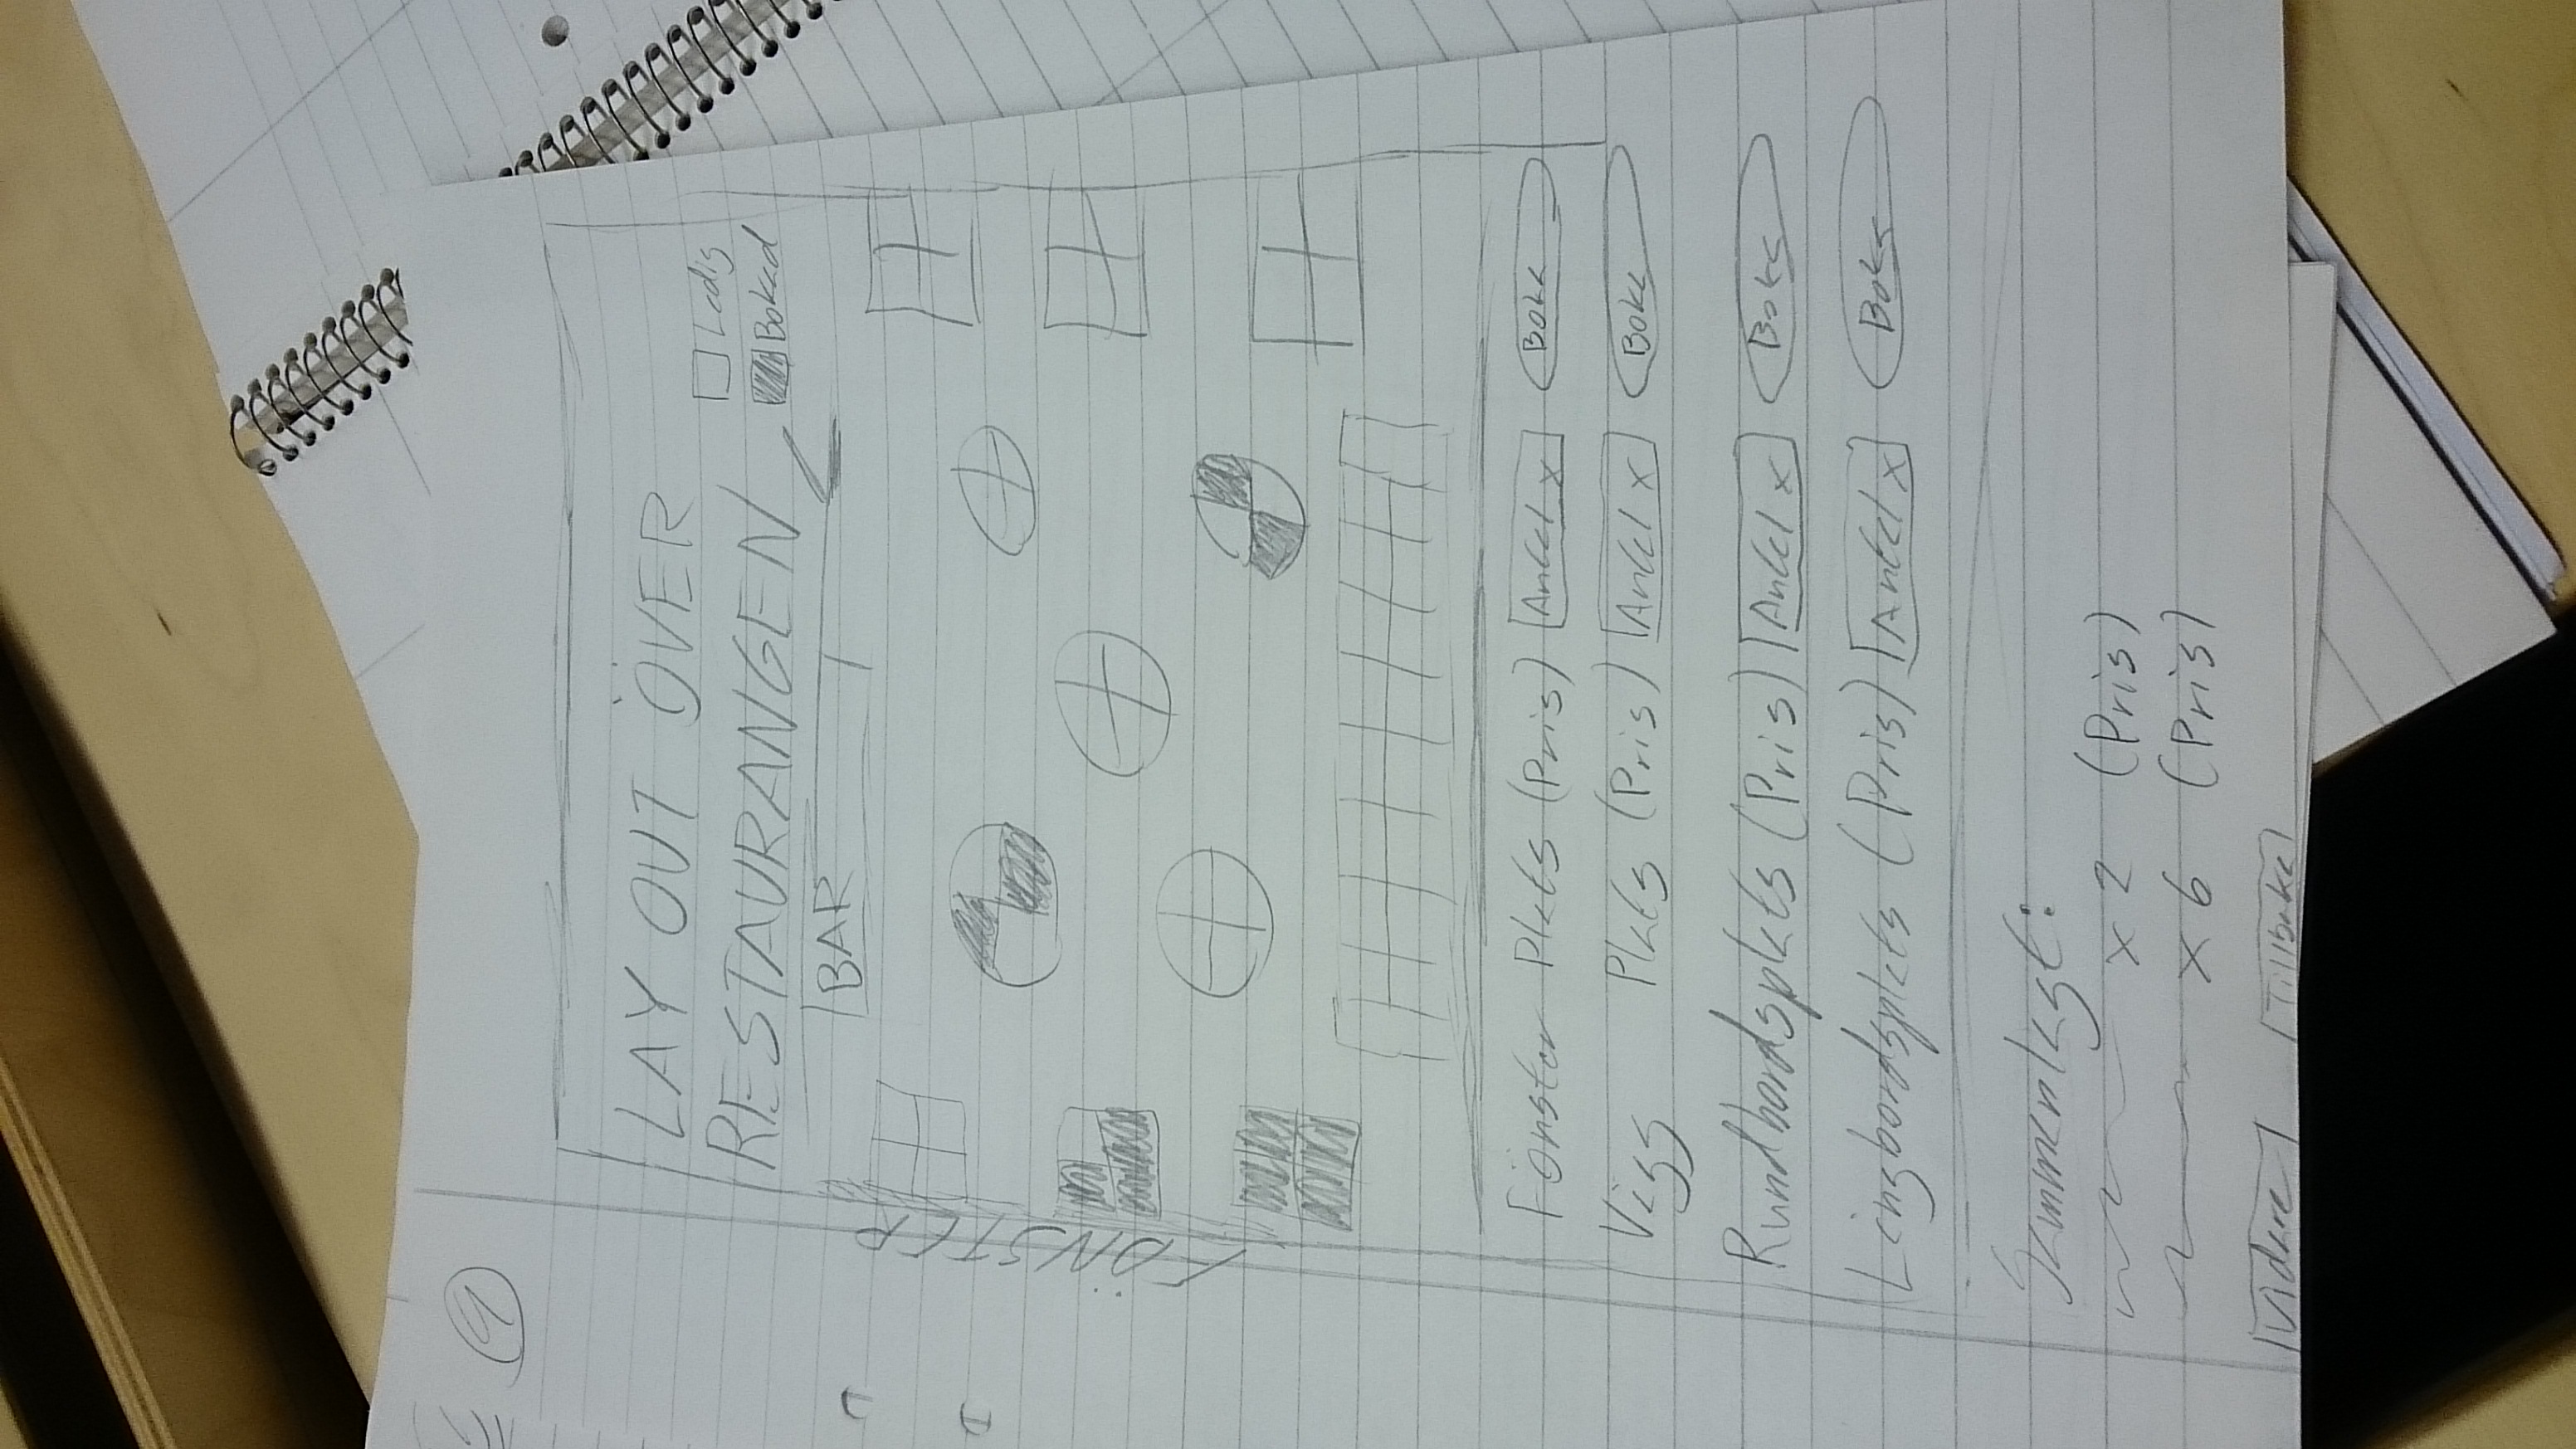 9
LAY OUT ÖVER
RESTAURANGEN
Ledig
Bokad
BAR
FÖNSTER
Fönster Plats (Pris) Antal x Boka
Vägg Plats (Pris) Antal x Boka
Rundbordsplats (Pris) Antal x Boka
Långbordsplats (Pris) Antal x Boka
Sammanlagt:
x 2 (Pris)
x 6 (Pris)
Vidare Tillbaka